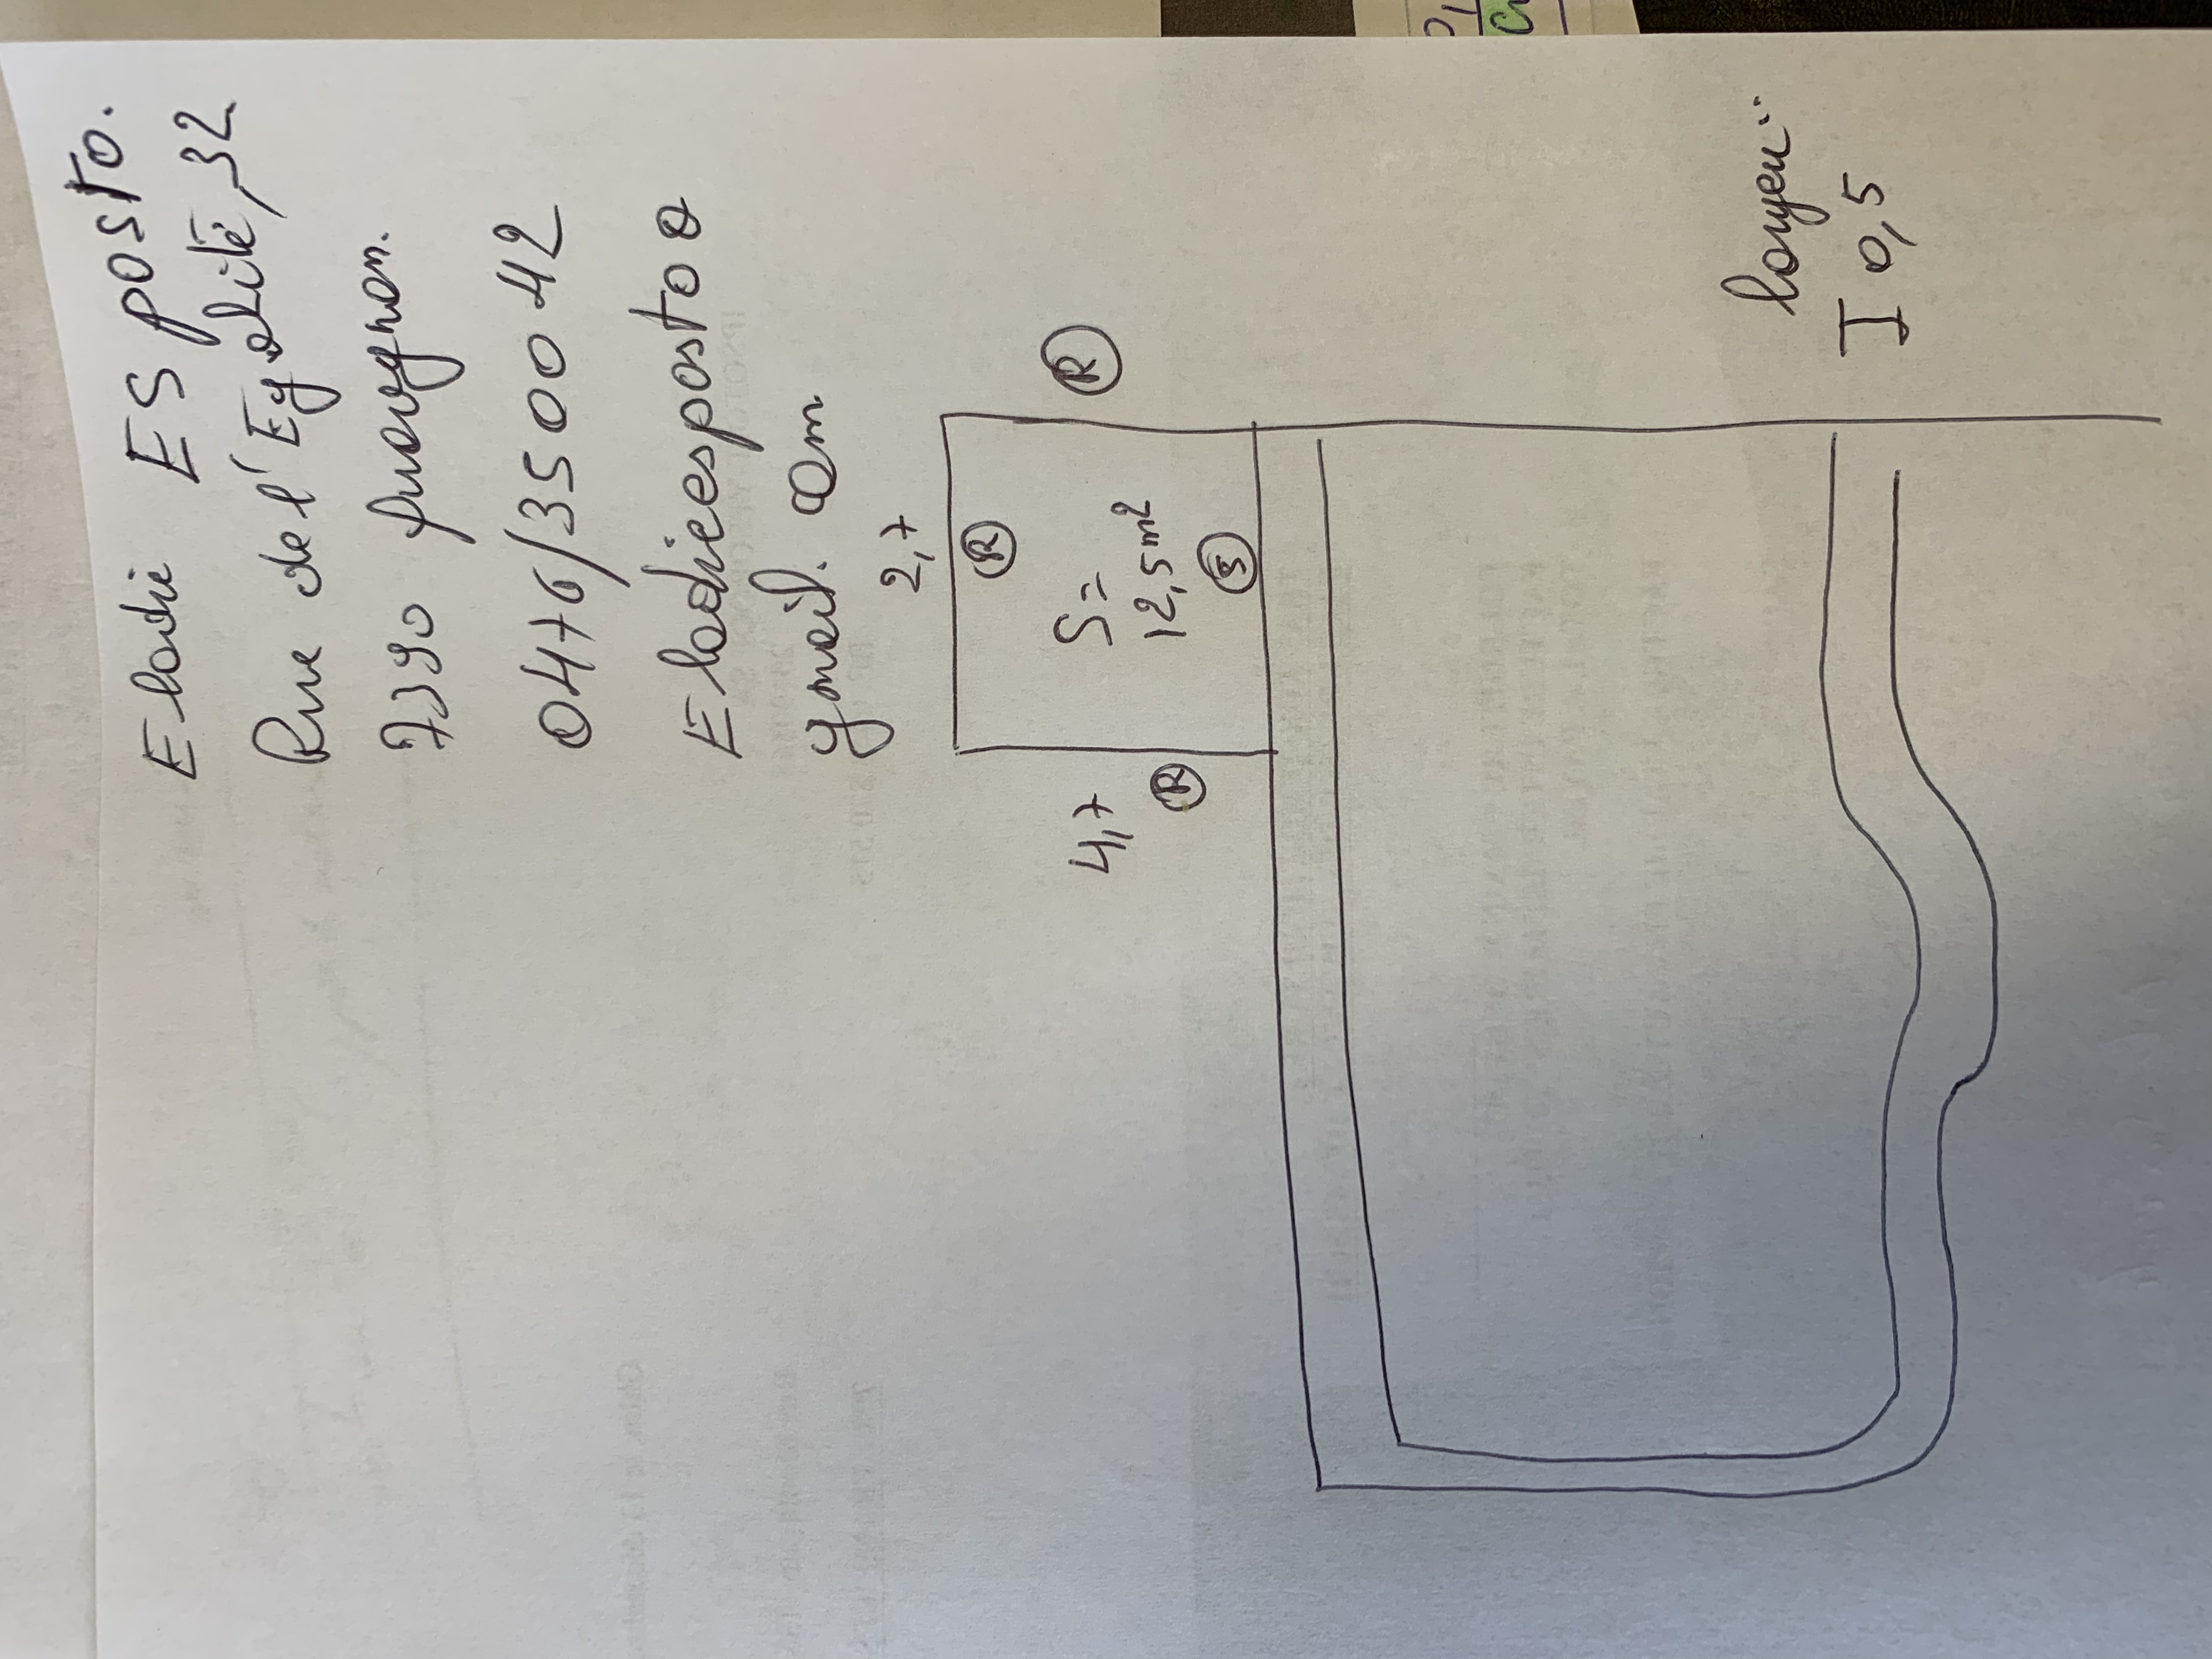 Elodie ESposto.
Rue de l'Egalité, 32
7390 quaregnon.
0476/350042
Elodieesposto@
gmail.com
2,7
R
R
S=
12,5m²
S
4,7
R
I 0,5